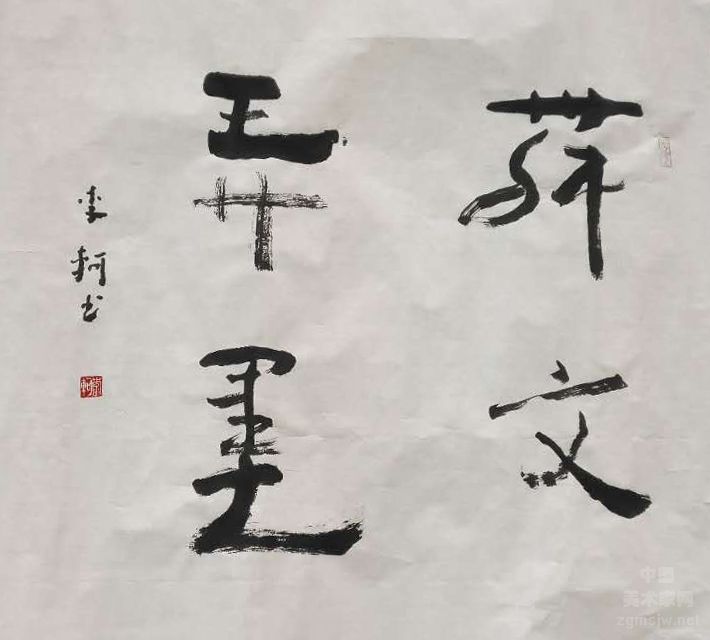 舞文
弄墨
軻书
中国
美术家网
zgmsjw.net